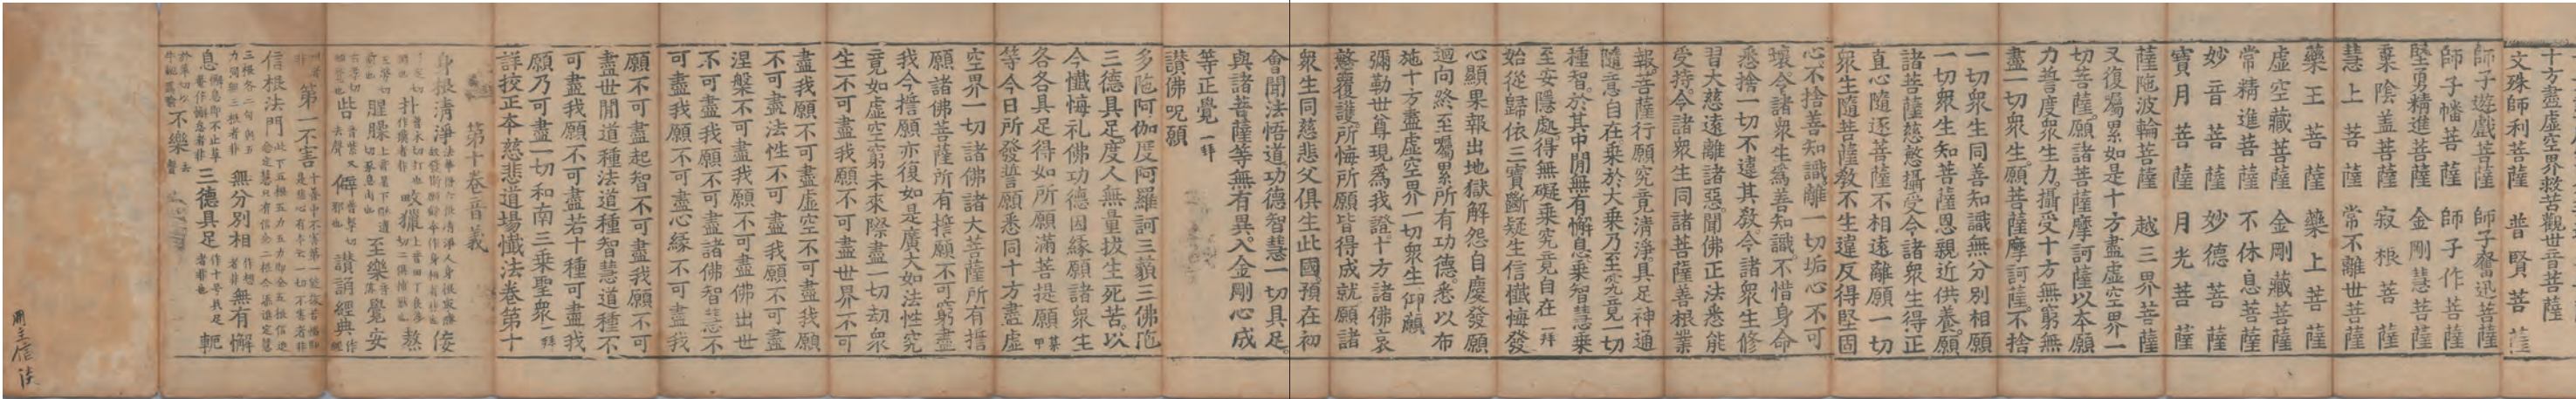 十方盡虛空界救苦觀世音菩薩
文殊師利菩薩　普賢菩薩
師子遊戲菩薩　師子奮迅菩薩
師子幡菩薩　師子作菩薩
堅勇精進菩薩　金剛慧菩薩
棄陰蓋菩薩　寂根菩薩
慧上菩薩　常不離世菩薩
藥王菩薩　藥上菩薩
虛空藏菩薩　金剛藏菩薩
常精進菩薩　不休息菩薩
妙音菩薩　妙德菩薩
寶月菩薩　月光菩薩
薩陁波輪菩薩　越三界菩薩
又復囑累如是十方盡虛空界一
切菩薩願諸菩薩摩訶薩以本願
力誓度衆生力攝受十方無窮無
盡一切衆生願菩薩摩訶薩不捨
一切衆生同善知識無分別相願
一切衆生知菩薩恩親近供養願
諸菩薩慈愍攝受令諸衆生得正
直心隨逐菩薩不相遠離願一切
衆生隨菩薩教不生違反得堅固
心不捨善知識離一切垢心不可
壞令諸衆生爲善知識不惜身命
悉捨一切不違其教令諸衆生修
習大慈遠離諸惡聞佛正法悉能
受持令諸衆生同諸菩薩善根業
報菩薩行願究竟清淨具足神通
隨意自在乘於大乘乃至究竟一切
種智於其中閒無有懈息乘智慧乘
至安隱處得無礙乘究竟自在一拜
始從歸依三寶斷疑生信懺悔發
心顯果報出地獄解怨自慶發願
迴向終至囑累所有功德悉以布
施十方盡虛空界一切衆生仰願
彌勒世尊現爲我證十方諸佛哀
愍覆護所悔所願皆得成就願諸
衆生同慈悲父俱生此國預在初
會聞法悟道功德智慧一切具足
與諸菩薩等無有異入金剛心成
等正覺一拜
讚佛呪願
多陁阿伽度阿羅訶三藐三佛陁
三德具足度人無量拔生死苦以
今懺悔礼佛功德因緣願諸衆生
各各具足得如所願滿菩提願某甲
等今日所發誓願悉同十方盡虛
空界一切諸佛諸大菩薩所有誓
願諸佛菩薩所有誓願不可窮盡
我今誓願亦復如是廣大如法性究
竟如虛空窮未來際盡一切劫衆
生不可盡我願不可盡世界不可
盡我願不可盡虛空不可盡我願
不可盡法性不可盡我願不可盡
涅槃不可盡我願不可盡佛出世
不可盡我願不可盡諸佛智慧不
可盡我願不可盡心緣不可盡我
願不可盡起智不可盡我願不可
盡世間道種法道種智慧道種不
可盡我願不可盡若十種可盡我
願乃可盡一切和南三乘聖衆一拜
詳校正本慈悲道場懺法卷第十
第十卷音義
身根清淨
第一不害
信根法門
無分別相
無有懈
息
三德具足
不樂